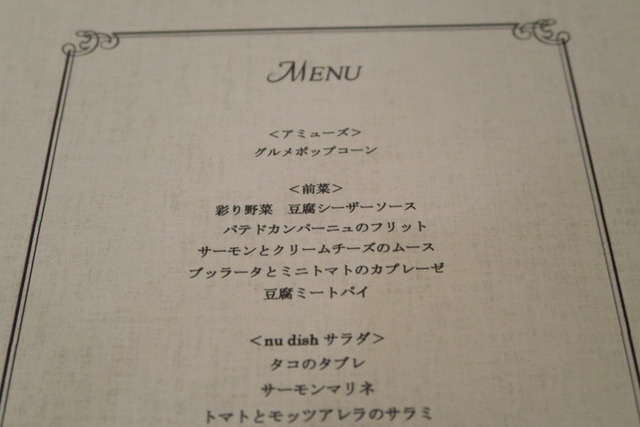 MENU
＜アミューズ＞
グルメポップコーン
＜前菜＞
彩り野菜　豆腐シーザーソース
パテドカンパーニュのフリット
サーモンとクリームチーズのムース
ブッラータとミニトマトのカプレーゼ
豆腐ミートパイ
＜nu dish サラダ＞
タコのタブレ
サーモンマリネ
トマトとモッツアレラのサラミ